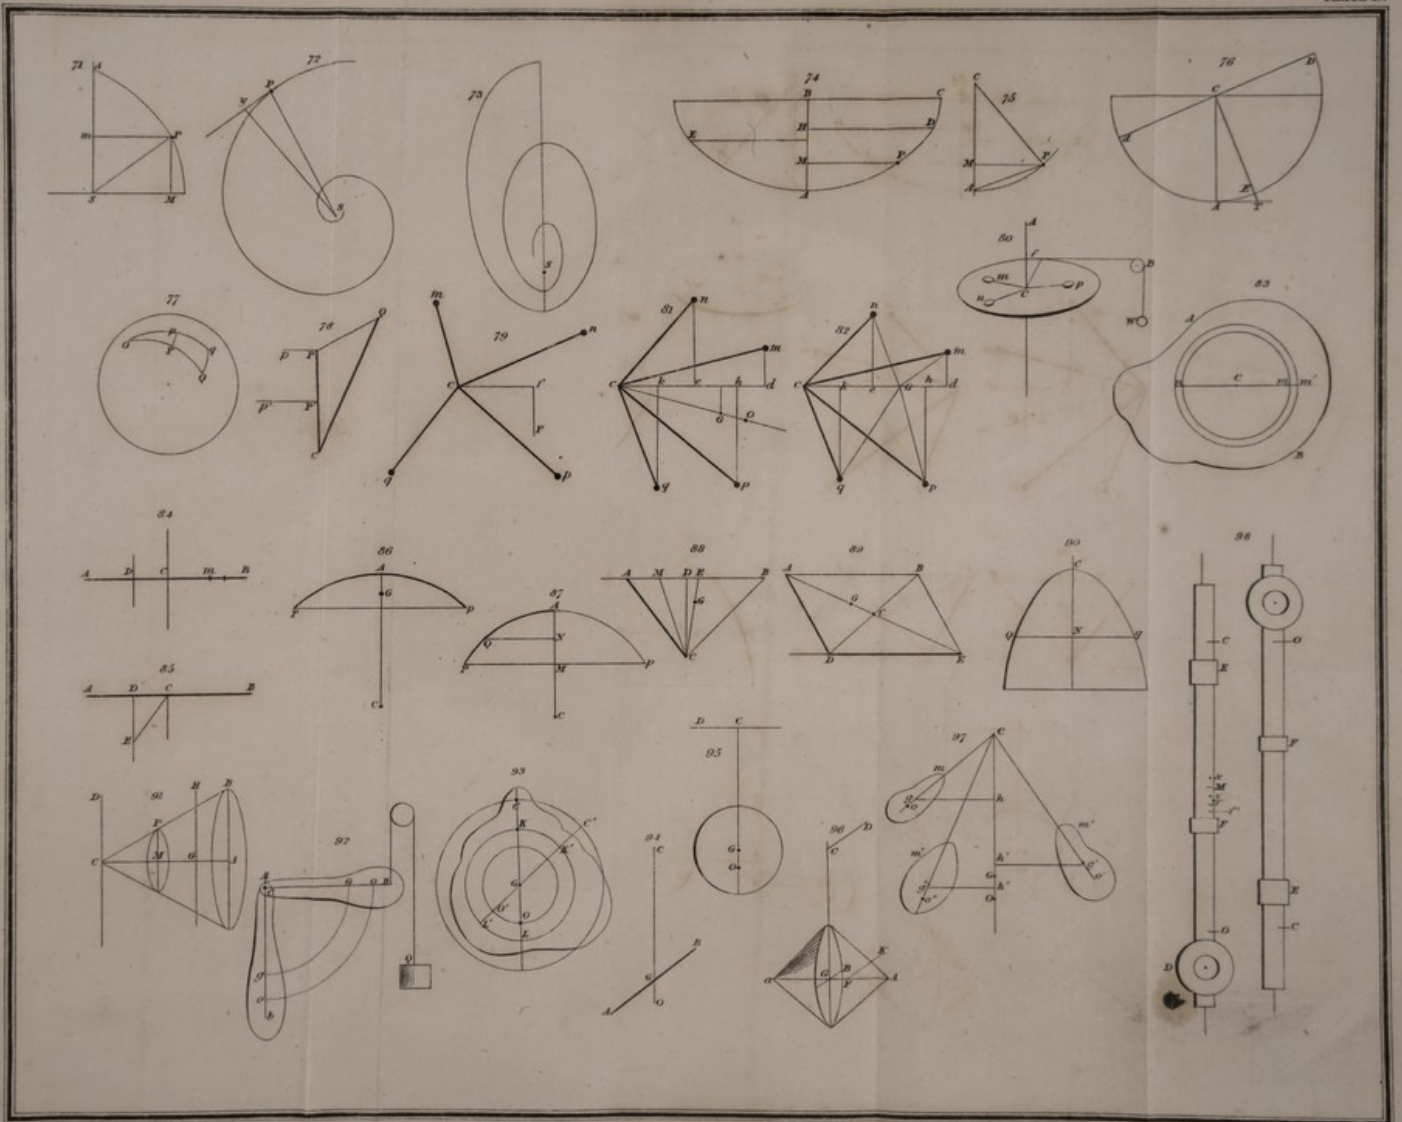 71
A
m
P
S
M
72
Y
P
S
73
S
74
B
C
E
H
D
M
P
A
75
C
M
P
A
76
D
C
A
E
A
T
77
O
P
P
q
Q
78
Q
p
P
p'
P
C
79
m
n
C
f
F
q
p
80
A
f
B
m
C
p
n
W
81
n
m
C
k
e
h
d
G
O
q
p
82
n
m
C
k
e
G
h
d
q
p
83
A
n
C
m
m'
B
84
A
D
C
m
B
85
A
D
C
B
E
86
A
G
P
p
C
87
A
Q
N
P
M
p
C
88
A
M
D
E
B
G
C
89
A
B
G
C
D
E
90
C
Q
N
q
91
D
H
B
P
C
M
G
A
92
A
C
G
O
B
g
o
b
Q
93
C
K
C'
K'
G
O'
O
L'
L
94
C
B
G
A
O
95
D
C
G
O
96
D
C
K
a
G
B
F
A
97
C
m
g
o
h
m'
m''
h'
g'
G
h''
O
98
C
O
E
F
M
F
E
O
C
D